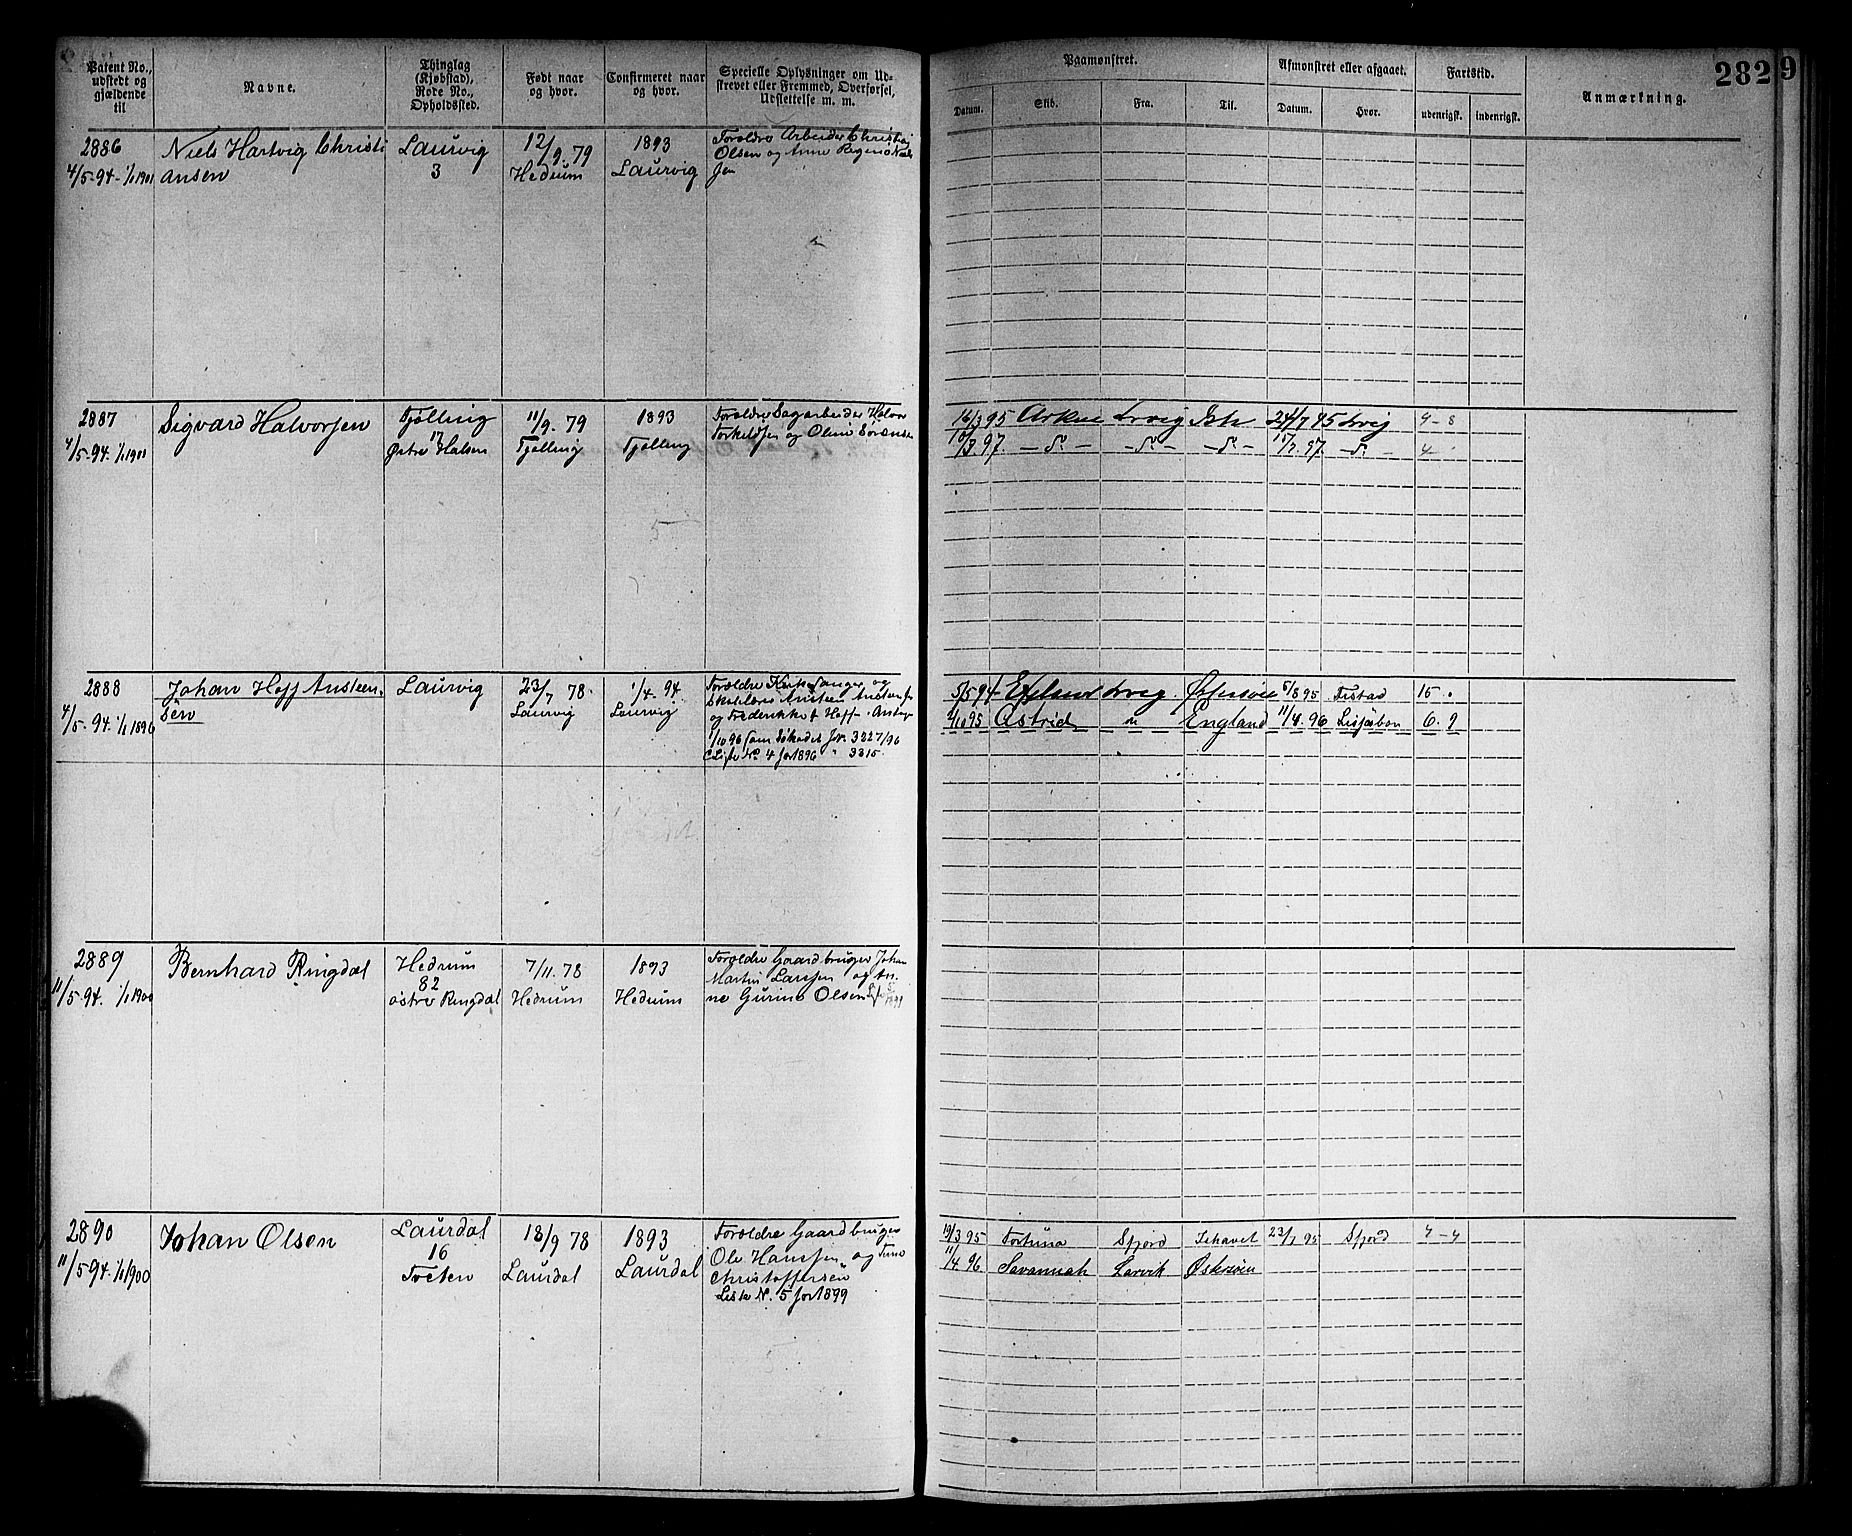 Patent No., udstedt og gjældende til
Navne.
Thinglag (Kjøbstad), Rode No., Opholdssted.
Født naar og hvor.
Confirmeret naar og hvor.
Specielle Oplysninger om Udskrevet eller Fremmed, Overførsel, Udslettelse m. m.
Paamønstret.
Datum.
Skib.
Fra.
Til.
Afmønstret eller afgaaet.
Datum.
Hvor.
Fartstid.
udenrigsk.
indenrigsk.
Anmærkning.
282
9
2886
4/5-94-1/1 1901
Niels Hartvig Christi
ansen
Laurvig
3
12/9. 79
Hedrum
1893
Laurvig
Forældre Arbeider
Olsen og Anne
2887
4/5-94. 1/1 1901
Sigvard Halvorsen
Tjølling
17
Østre Halsen
11/9. 79
Tjølling
1893
Tjølling
Forældre Sagarbeider Halvor
Torkildsen og Oline Sørensen
16/3 95 Lrvig Ish 95 Lrvig 4-8
97. 97.
2888
4/5-94. 1/1 1896
Johan Hoff Ansteen-
sen
Laurvig
23/7 78.
Laurvig
1/4. 94.
Laurvig
Forældre Kirkesanger og
og Frederikke Hoff
1/10 96 som Jr. 3227/96
Liste No 4 for 1896 " 3315.
5/5 94 Lrvig. 5/8 95 15
10 95 Astrid England 11/4. 96 6. 9
2889
11/5-94. 1/1 1900
Bernhard Ringdal
Hedrum
82
østre Ringdal
7/11. 78
Hedrum
1893
Hedrum
Forældre Gaardbruger Johan
Martin Larssen og An-
ne Gurine Olsen
2890
11/5-94. 1/1 1900
Johan Olsen
Laurdal
16
Foeten
18/9 78
Laurdal
1893
Laurdal
Forældre Gaardbruger
Ole Hanssen og
Christoffersen
Liste N. 5 for 1899
19/3 95 Fortuna Sfjord Ishavet 23/7 95 Sfjord 4-4
11/4 96 Savannah Larvik Østersøen